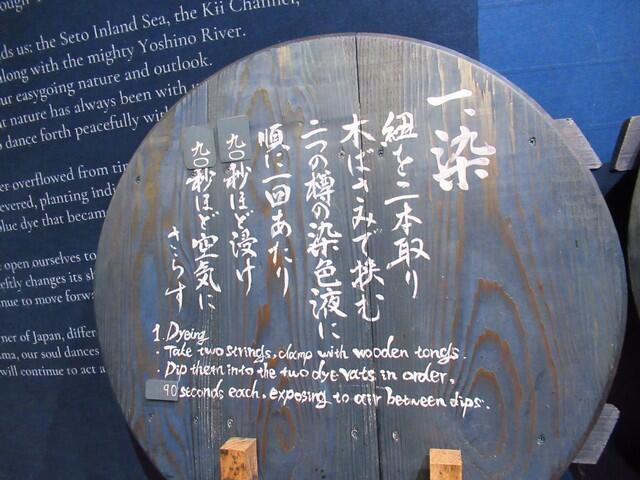 ough
ds us: the Seto Inland Sea, the Kii Channel,
along with the mighty Yoshino River.
ur easygoing nature and outlook.
t nature has always been with
o dance forth peacefully with
er overflowed from
evered, planting indi
blue dye that became
open ourselves to
eftly changes its sh
nue to move forw
ner of Japan, differ
ma, our soul dances
will continue to act a
一、染
紐を二本取り
木ばさみで挟む
二つの樽の染色液に
順に一回あたり
九〇秒ほど浸け
九〇秒ほど空気に
さらす
1. Dyeing
・Take two strings, clamp with wooden tongs.
・Dip them into the two dye vats in order,
90 seconds each, exposing to air between dips.